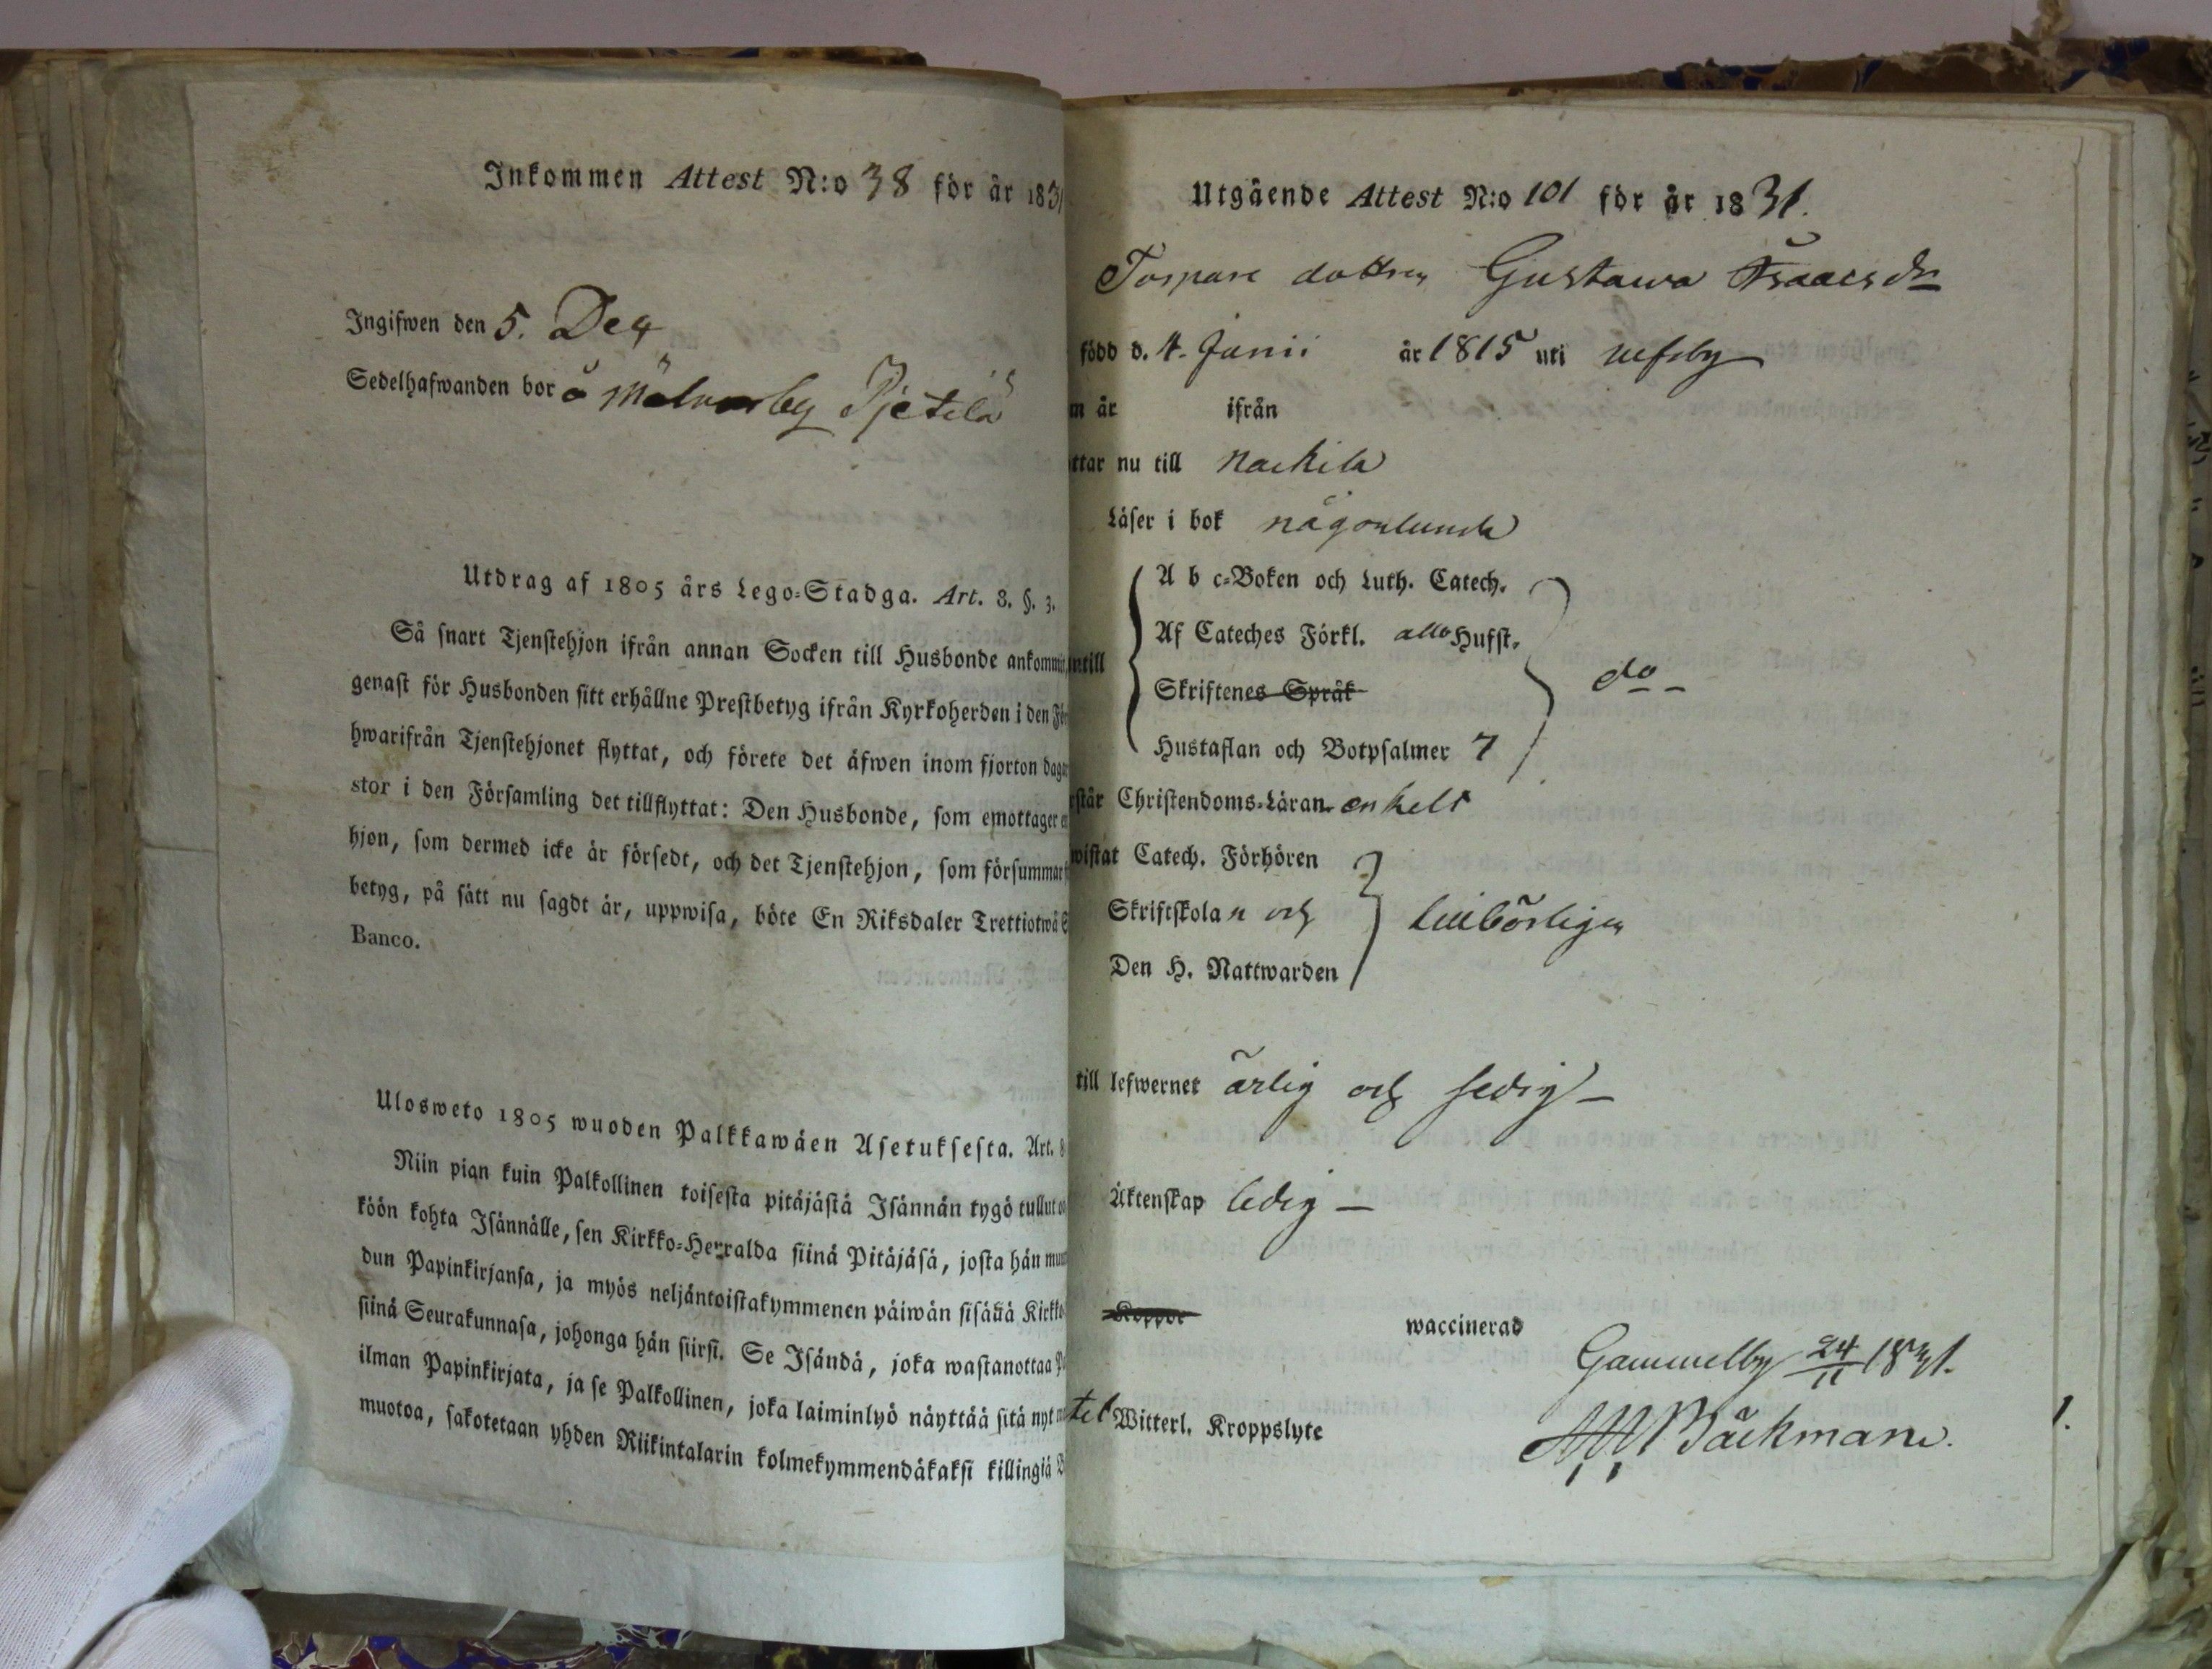 Inkommen Attest N:o 38 för år 1831
Ingifwen den 5. Dec
Sedelhafwanden bor å Malmsby Pjetilä
Utdrag af 1805 års Lego-Stadga. Art. 8. §. 3.
Så snart Tjenstehjon ifrån annan Socken till Husbonde
genast för Husbonden sitt erhållne Prestbetyg ifrån Kyrkoherden i den
hwarifrån Tjenstehjonet flyttat, och förete det äfwen inom fjorton
stor i den Församling det tillflyttat: Den Husbonde, som emottager
hjon, som dermed icke är försedt, och det Tjenstehjon, som försummar
betyg, på sätt nu sagdt är, uppwisa, böte En Riksdaler Trettiotwå
Banco.
Ulosweto 1805 wuoden Palkkawäen Asetuksesta. Art. 8
Niin pian kuin Palkollinen toisesta pitäjästä Isännän tygö tullut
köön kohta Isännälle, sen Kirkko-Herralda siinä Pitäjäsä, josta hän
dun Papinkirjansa, ja myös neljäntoistakymmenen päiwän sisällä
siinä Seurakunnasa, johonga hän siirsi. Se Isändä, joka wastanottaa
ilman Papinkirjata, ja se Palkollinen, joka laiminlyö näyttää sitä nyt
muotoa, sakotetaan yhden Riikintalarin kolmekymmendäkaksi killingiä
Utgående Attest N:o 101 för år 1831.
Torpare dottren Gustawa Isaacsdr
född d. 4. Junii år 1815 uti Ulfsby
m år ifrån
ttar nu till Nackila
Läser i bok någorlunda
A b c-Boken och Luth. Catech.
Af Cateches Förkl. alla Husst.
ntill
Skriftenes Språk
do
Hustaflan och Botpsalmer 7
rstår Christendoms-Läran enkelt
wistat Catech. Förhören
Skriftskolan och
tillbörligen
Den H. Nattwarden
till lefwernet ärlig och sedig
Äktenskap ledig
Koppor
waccinerad
Gammelby 24/11 1831.
Witterl. Kroppslyte
Bäckman.
1.